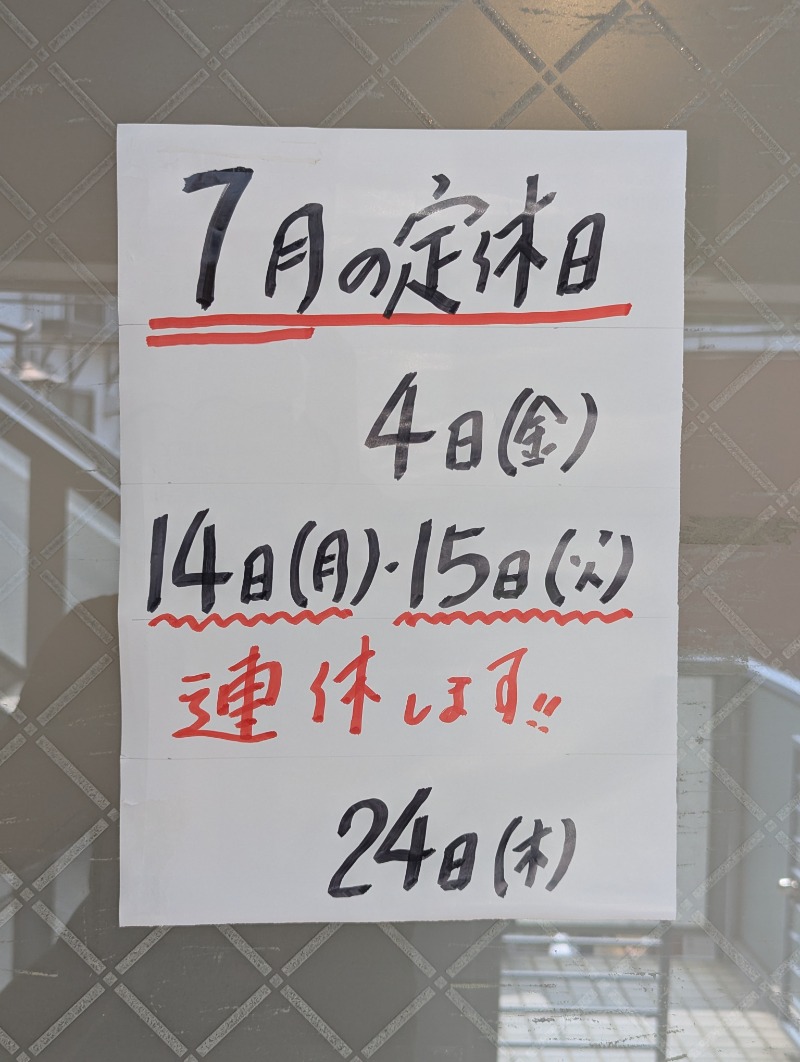 7月の定休日
4日(金)
14日(月)・15日(火)
連休します!!
24日(木)